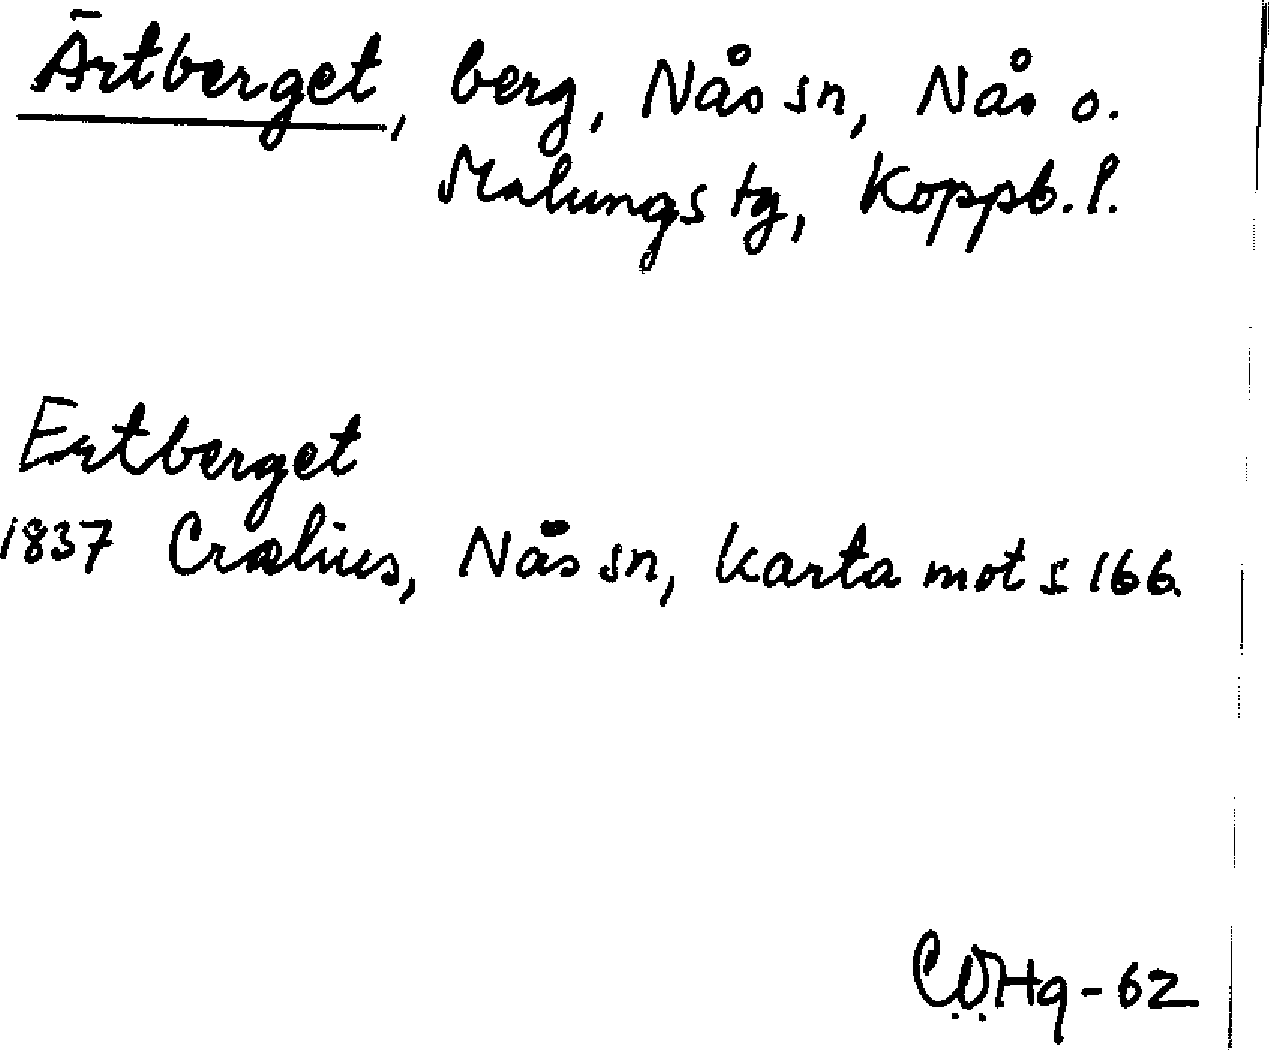 Ärtberget, berg, Nås sn, Nås o.
Malungs tg, Koppb. l.
Ertberget
1837 Crælius, Nås sn, Karta mot s 166.
CÖHg-62